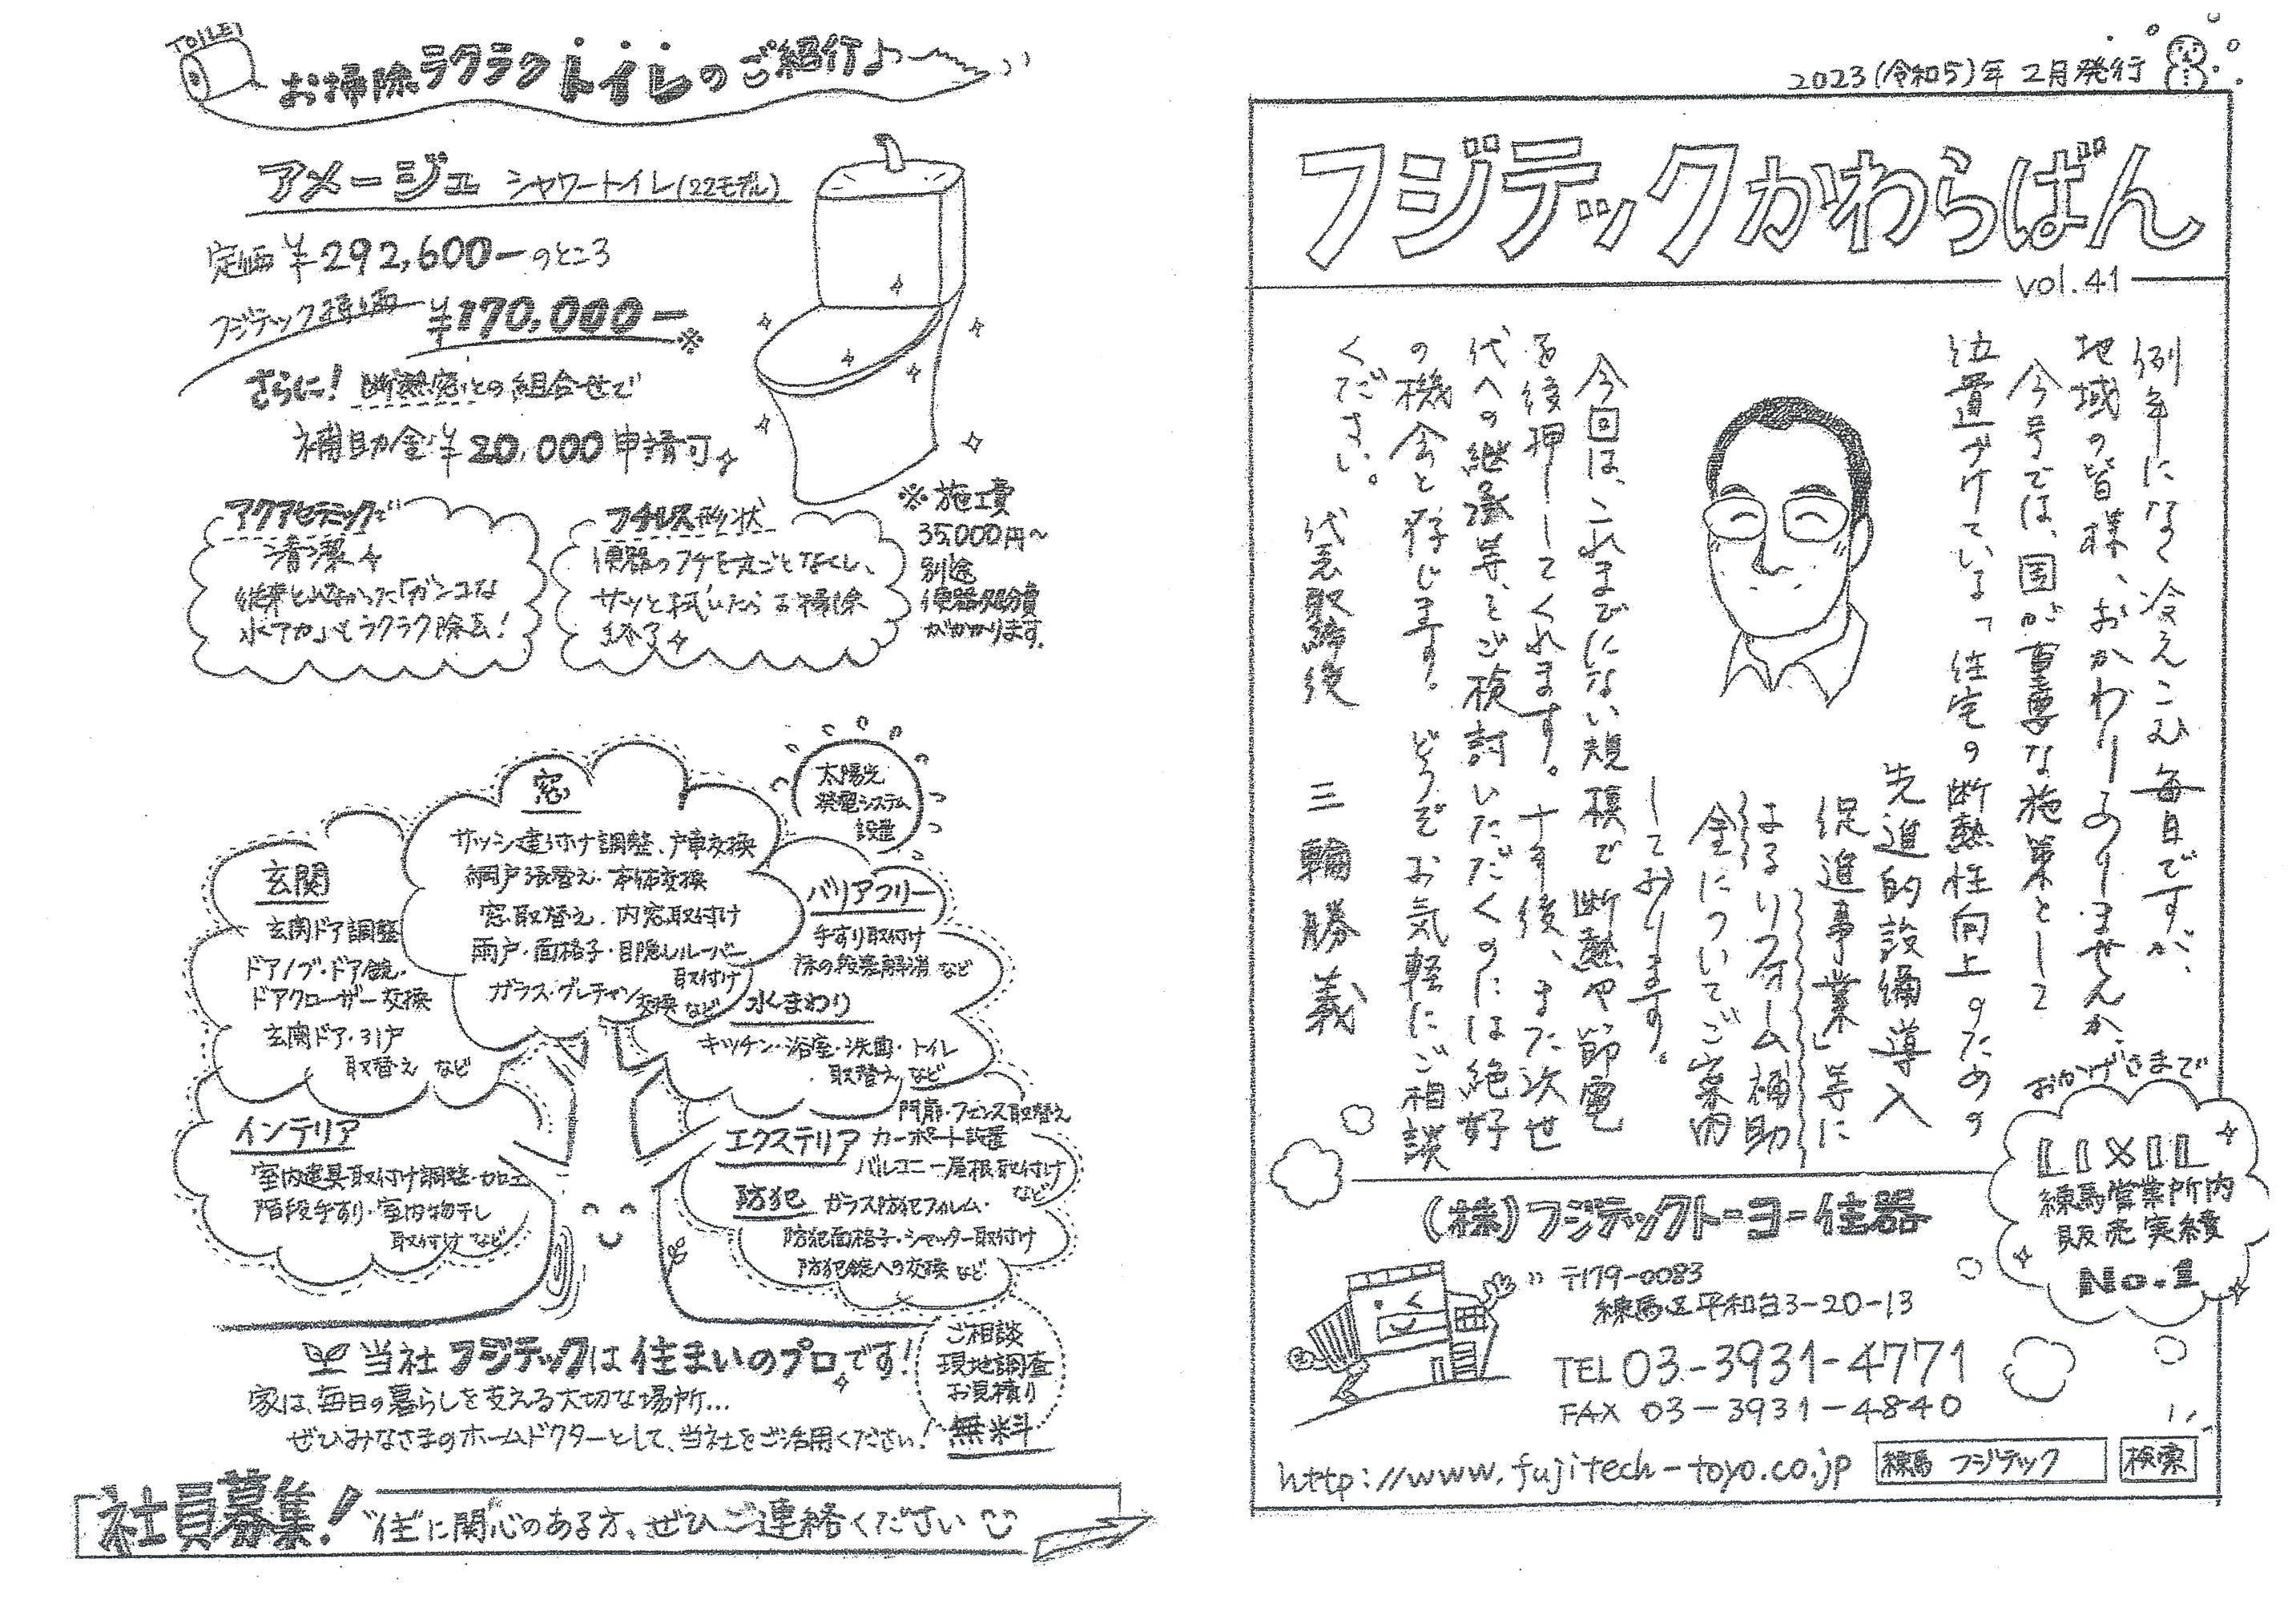 2023(令和5)年 2月発行
フジテックかわらばん
vol.41
例年になく冷えこむ毎日ですが、
地域の皆様、おかわりありませんか。
今号では、国が重要な施策として
位置づけている「住宅の断熱性向上のための
先進的設備導入
促進事業」等に
よるリフォーム補助
金についてご案内
してみります。
今回は、これまでにない規模で断熱や節電
を後押ししてくれます。十年後、また次世
代への継承等、をご検討いただくのには絶好
の機会と存じます。どうぞお気軽にご相談
ください。
代表取締役 三輪勝義
おかげさまで
LIXIL
練馬営業所内
販売実績
No.1
(株)フジテックトーヨー住器
〒179-0083
練馬区平和台3-20-13
TEL 03-3931-4771
FAX 03-3931-4840
http://www.fujitech-toyo.co.jp
練馬 フジテック
検索
TOILET
お掃除ラクラクトイレのご紹介♪
アメージュ シャワートイレ(22モデル)
定価 ¥292,600-のところ
フジテック特価 ¥170,000-※
さらに! 断熱窓との組合せで
補助金¥20,000申請可
アクアセラミックで
清潔
従来とれなかった「ガンコな
水アカ」もラクラク除去!
フチレス形状
便器のフチを丸ごとなくし、
サッと拭いたらお掃除
終了
※施工費
35,000円〜
別途
便器処分費
がかかります。
太陽光
発電システム
設置
窓
サッシ建て付け調整、戸車交換
網戸張替え・本体交換
窓取替え・内窓取付け
雨戸・面格子・目隠しルーバー
取付け
ガラス・グレチャン交換 など
玄関
玄関ドア調整
ドアノブ・ドア錠・
ドアクローザー交換
玄関ドア・引戸
取替え など
バリアフリー
手すり取付け
床の段差解消 など
水まわり
キッチン・浴室・洗面・トイレ
取替え など
インテリア
室内建具取付け調整・加工
階段手すり・室内物干し
取付け など
エクステリア
門扉・フェンス取替え
カーポート設置
バルコニー屋根取付け
など
防犯 ガラス防犯フィルム・
防犯面格子・シャッター取付け
防犯錠への交換 など
当社フジテックは住まいのプロです!
家は、毎日の暮らしを支える大切な場所…
ぜひみなさまのホームドクターとして、当社をご活用ください!
ご相談
現地調査
お見積り
無料
社員募集! “住”に関心のある方、ぜひご連絡ください